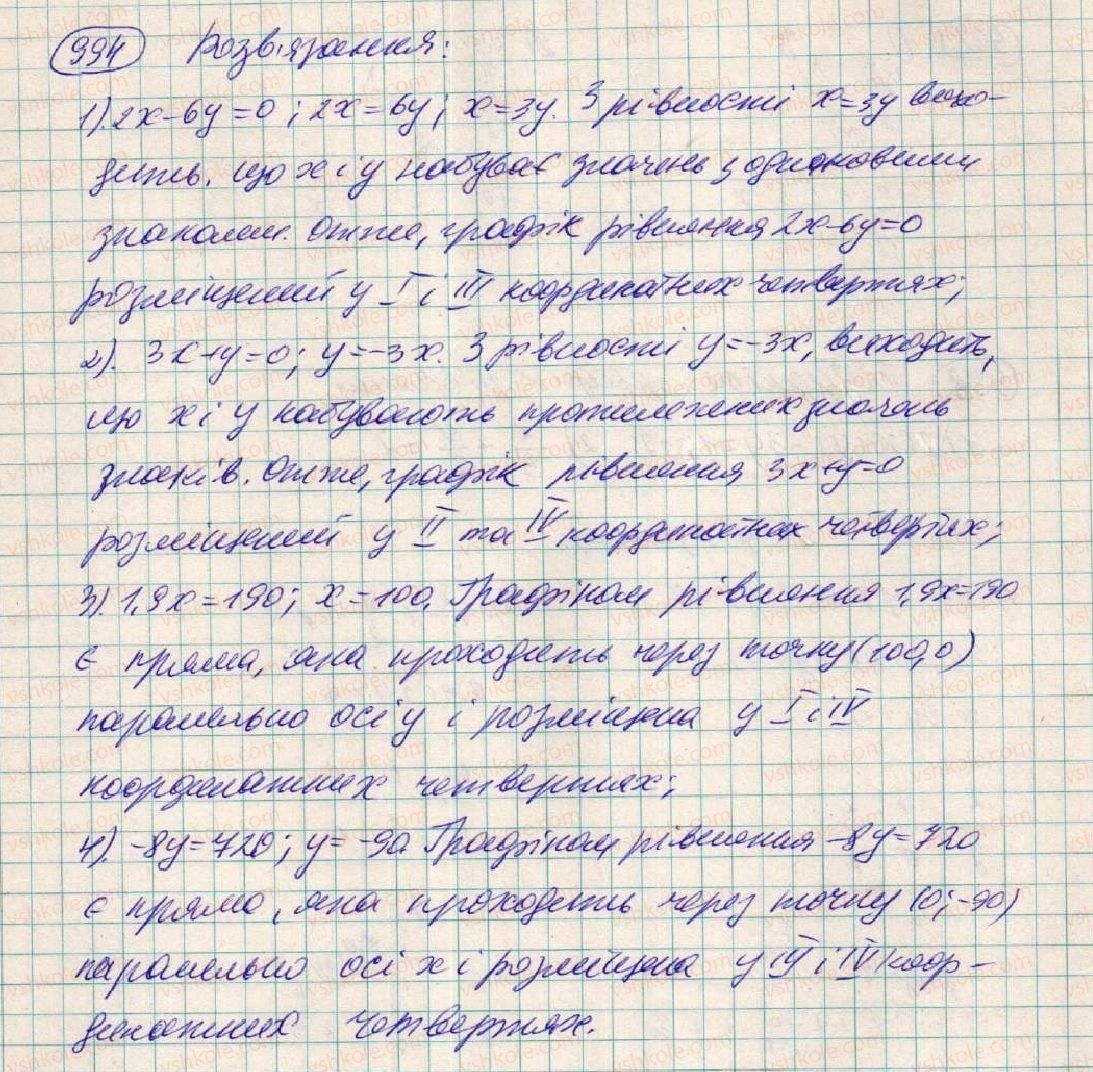 994 Розв'язання:
1). 2x-6y=0; 2x=6y; x=3y. З рівності x=3y вихо-
дить, що x і y набуває значень з однаковими
знаками. Отже, графік рівняння 2x-6y=0
розміщений у I і III координатних четвертях;
2). 3x+y=0; y=-3x. З рівності y=-3x, виходить,
що x і y набувають протилежних значень
знаків. Отже, графік рівняння 3x+y=0
розміщений у II та IV координатних четвертях;
3). 1,9x=190; x=100. Графіком рівняння 1,9x=190
є пряма, яка проходить через точку (100,0)
паралельно осі y і розміщена у I і IV
координатних четвертях;
4). -8y=720; y=-90. Графіком рівняння -8y=720
є пряма, яка проходить через точку (0;-90)
паралельно осі x і розміщена у і IV коор-
динатних четвертях.
vshkole.com